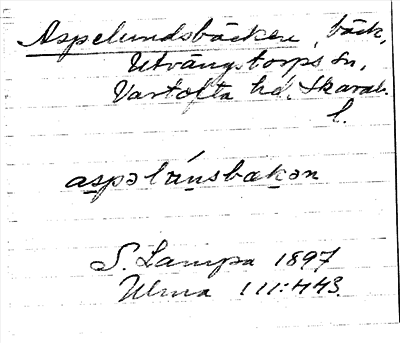 Aspelundsbäcken, bäck,
Utvängstorps sn,
Vartofta hd. Skarab.
l.
aspəlúnsbäkən
S. Lampa 1897
Ulma 111:443.